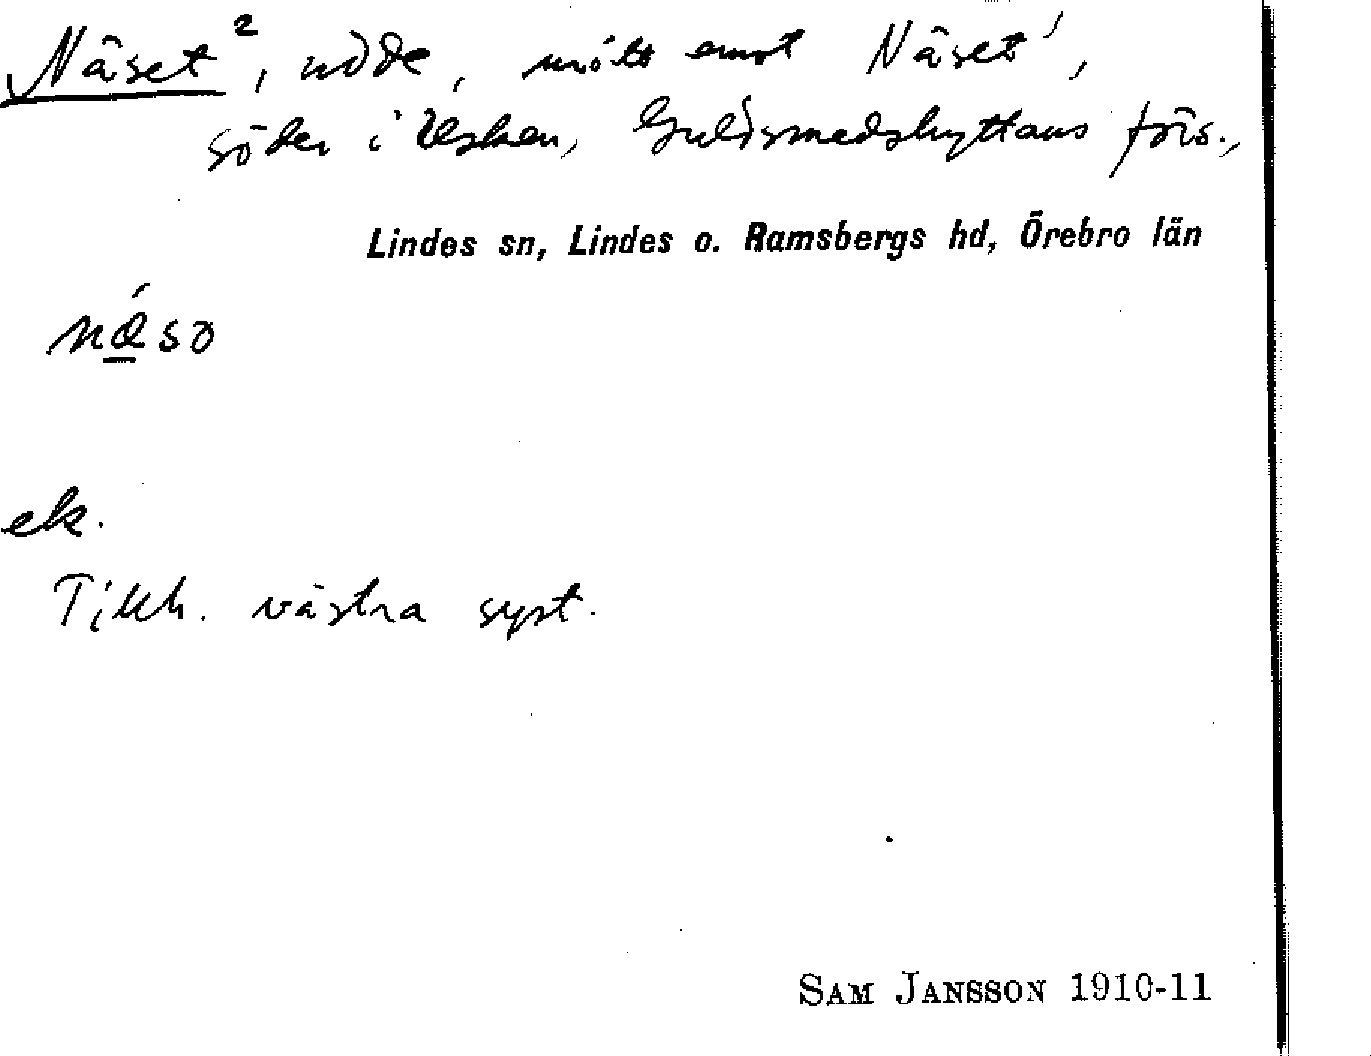 Näset², udde, mitt emot Näset¹,
söder i Usken, Guldsmedshyttans förs.,
Lindes sn, Lindes o. Ramsbergs hd, Örebro län
ek.
västra syst.
SAM JANSSON 1910-11